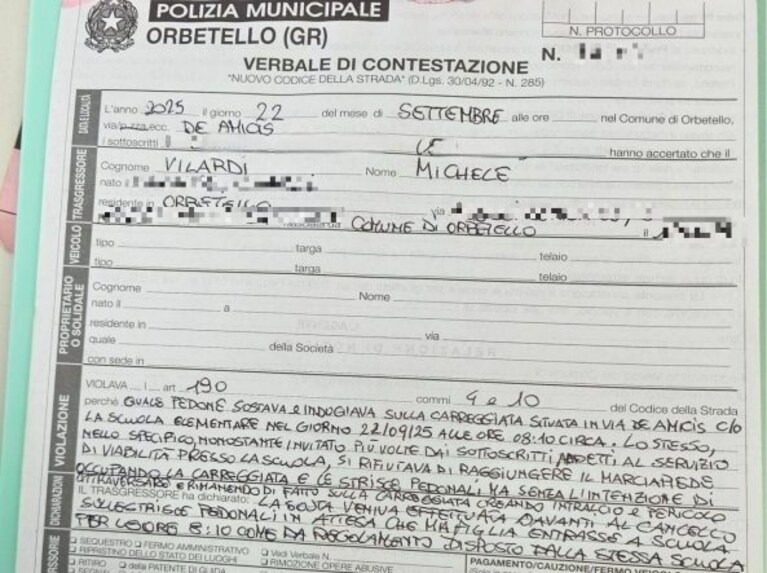 POLIZIA MUNICIPALE
ORBETELLO (GR)
N. PROTOCOLLO
N.
VERBALE DI CONTESTAZIONE
"NUOVO CODICE DELLA STRADA" (D.Lgs. 30/04/92 - N. 285)
DATA E LOCALITÀ
L'anno 2025 il giorno 22 del mese di SETTEMBRE alle ore nel Comune di Orbetello,
via/p.zza,ecc. DE AMICIS
i sottoscritti hanno accertato che il
TRASGRESSORE
Cognome VILARDI Nome MICHELE
nato il
residente in ORBETELLO via
COMUNE DI ORBETELLO il
VEICOLO
tipo targa telaio
tipo targa telaio
PROPRIETARIO O SOLIDALE
Cognome Nome
nato il a
residente in via
quale della Società
con sede in
VIOLAZIONE
VIOLAVA l art 190 commi 4 e 10 del Codice della Strada
perché QUALE PEDONE SOSTAVA e INDUGIAVA SULLA CARREGGIATA SITUATA IN VIA DE AMICIS C/O
LA SCUOLA ELEMENTARE NEL GIORNO 22/09/25 ALLE ORE 08:10 CIRCA. LO STESSO,
NELLO SPECIFICO, NONOSTANTE INVITATO PIÙ VOLTE DAI SOTTOSCRITTI ADDETTI AL SERVIZIO
DI VIABILITÀ PRESSO LA SCUOLA, SI RIFIUTAVA DI RAGGIUNGERE IL MARCIAPIEDE
OCCUPANDO LA CARREGGIATA E LE STRISCE PEDONALI MA SENZA L'INTENZIONE DI
ATTRAVERSARE e RIMANENDO DI FATTO SULLA CARREGGIATA CREANDO INTRALCIO e PERICOLO
DICHIARAZIONI
IL TRASGRESSORE ha dichiarato: LA SOSTA VENIVA EFFETTUATA DAVANTI AL CANCELLO
SULLE STRISCE PEDONALI IN ATTESA CHE MIA FIGLIA ENTRASSE A SCUOLA
PER LE ORE 8:10 COME DA REGOLAMENTO DISPOSTO DALLA STESSA SCUOLA
SEQUESTRO FERMO AMMINISTRATIVO Vedi Verbale N.
RIPRISTINO DELLO STATO DEI LUOGHI RIMOZIONE OPERE ABUSIVE
RITIRO della PATENTE DI GUIDA
PAGAMENTO/CAUZIONE/FERMO VEICOLO